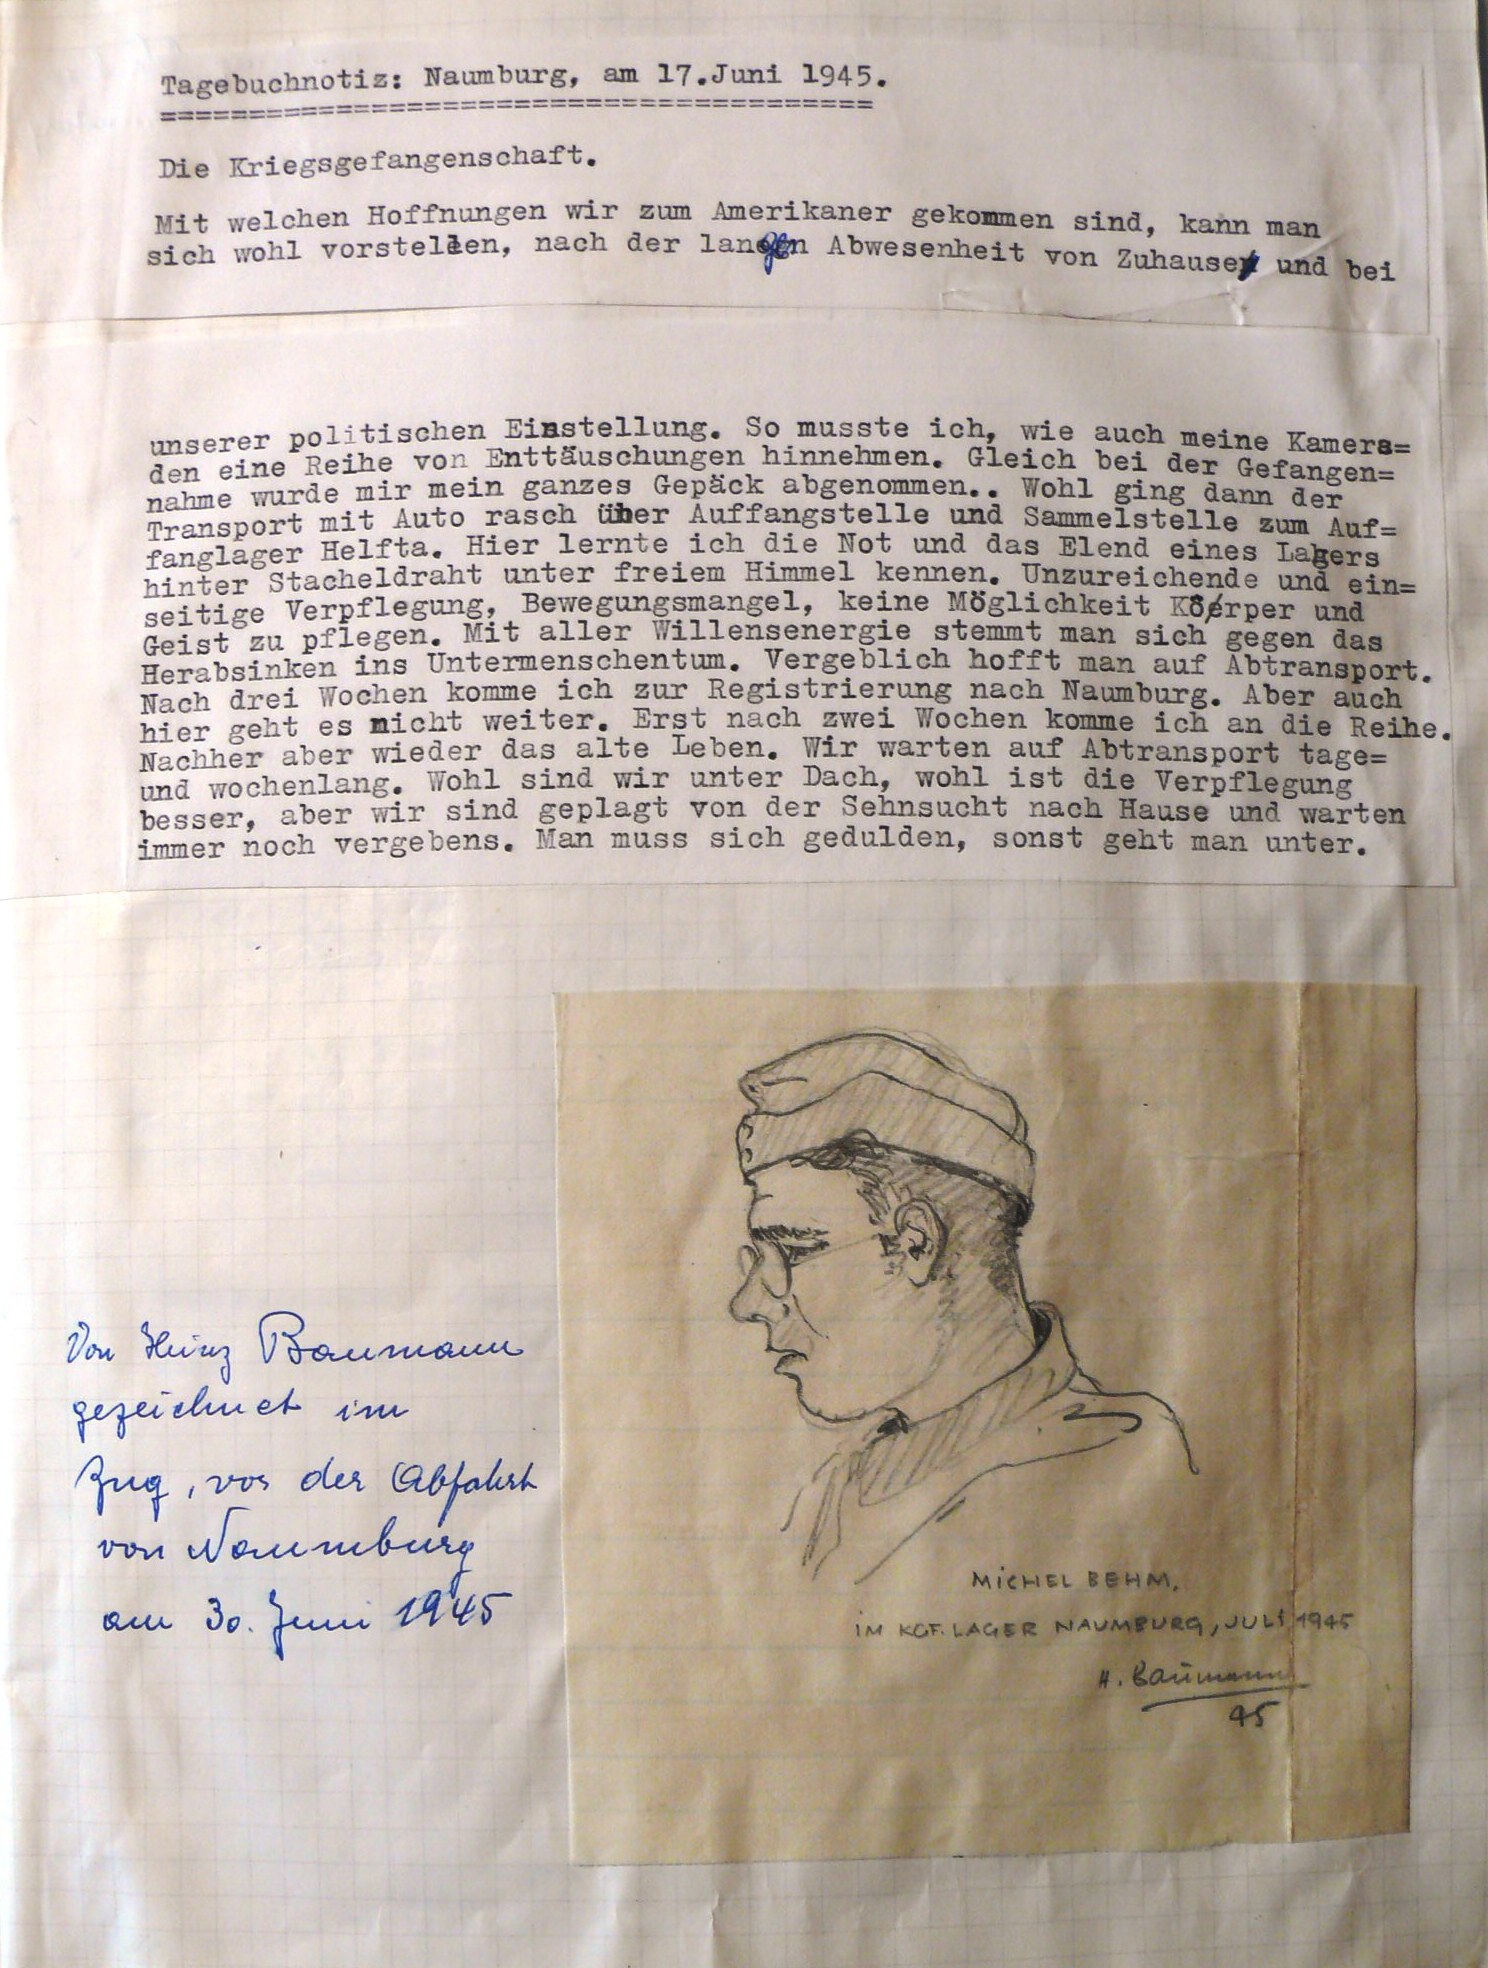 Tagebuchnotiz: Naumburg, am 17.Juni 1945.
=========================================
Die Kriegsgefangenschaft.
Mit welchen Hoffnungen wir zum Amerikaner gekommen sind, kann man
sich wohl vorstellen, nach der langen Abwesenheit von Zuhause und bei
unserer politischen Einstellung. So musste ich, wie auch meine Kamera=
den eine Reihe von Enttäuschungen hinnehmen. Gleich bei der Gefangen=
nahme wurde mir mein ganzes Gepäck abgenommen.. Wohl ging dann der
Transport mit Auto rasch über Auffangstelle und Sammelstelle zum Auf=
fanglager Helfta. Hier lernte ich die Not und das Elend eines Lagers
hinter Stacheldraht unter freiem Himmel kennen. Unzureichende und ein=
seitige Verpflegung, Bewegungsmangel, keine Möglichkeit Körper und
Geist zu pflegen. Mit aller Willensenergie stemmt man sich gegen das
Herabsinken ins Untermenschentum. Vergeblich hofft man auf Abtransport.
Nach drei Wochen komme ich zur Registrierung nach Naumburg. Aber auch
hier geht es nicht weiter. Erst nach zwei Wochen komme ich an die Reihe.
Nachher aber wieder das alte Leben. Wir warten auf Abtransport tage=
und wochenlang. Wohl sind wir unter Dach, wohl ist die Verpflegung
besser, aber wir sind geplagt von der Sehnsucht nach Hause und warten
immer noch vergebens. Man muss sich gedulden, sonst geht man unter.
Von Heinz Baumann
gezeichnet im
Zug, vor der Abfahrt
von Naumburg
am 30. Juni 1945
MICHEL BEHM,
IM KGF. LAGER NAUMBURG, JULI 1945
H. Baumann
45